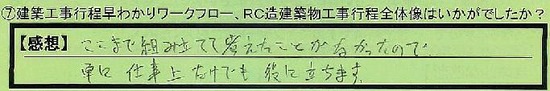 ⑦建築工事行程早わかりワークフロー、RC造建築物工事行程全体像はいかがでしたか？
【感想】ここまで組み立てて考えたことがなかったので
単に仕事上だけでも役に立ちます